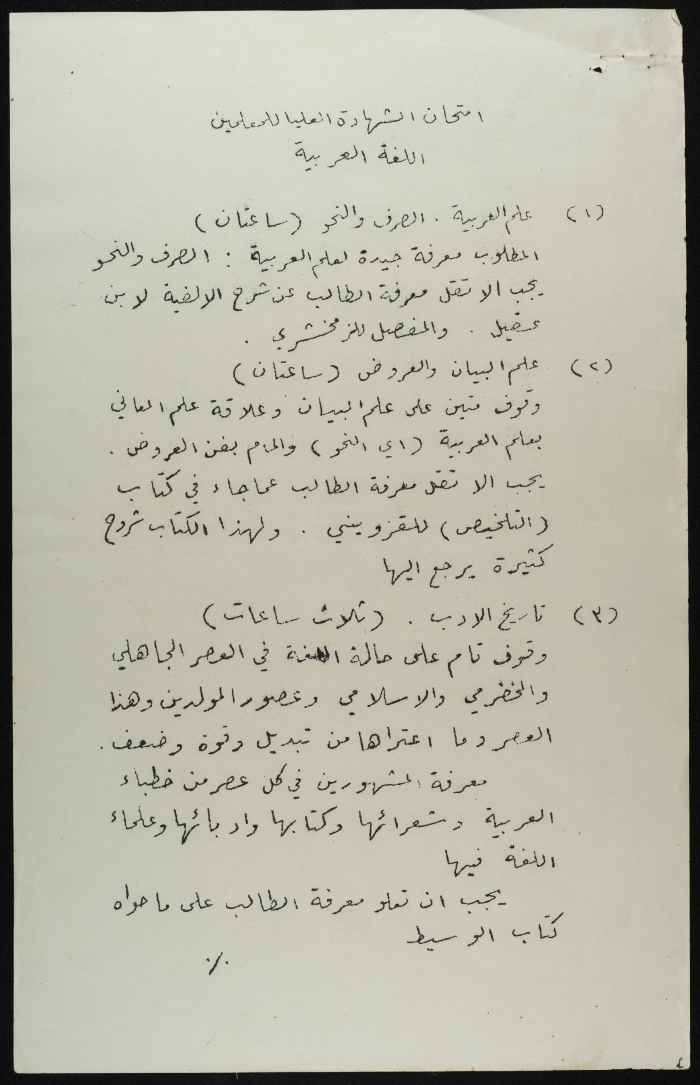 امتحان الشهادة العليا للمعلمين
اللغة العربية
(١) علم العربية . الصرف والنحو (ساعتان)
المطلوب معرفة جيدة لعلم العربية : الصرف والنحو
يجب الا تقل معرفة الطالب عن شرح الالفية لابن
عقيل . والمفصل للزمخشري .
(٢) علم البيان والعروض (ساعتان)
وقوف متين على علم البيان وعلاقة علم المعاني
بعلم العربية (اي النحو) والمام بفن العروض .
يجب الا تقل معرفة الطالب عما جاء في كتاب
(التلخيص) للقزويني . ولهذا الكتاب شروح
كثيرة يرجع اليها
(٣) تاريخ الادب . (ثلاث ساعات)
وقوف تام على حالة اللغة في العصر الجاهلي
والمخضرمي والاسلامي وعصور المولدين وهذا
العصر وما اعتراها من تبديل وقوة وضعف .
معرفة المشهورين في كل عصر من خطباء
العربية وشعرائها وكتابها وادبائها وعلماء
اللغة فيها
يجب ان تعلو معرفة الطالب على ما حواه
كتاب الوسيط
٪